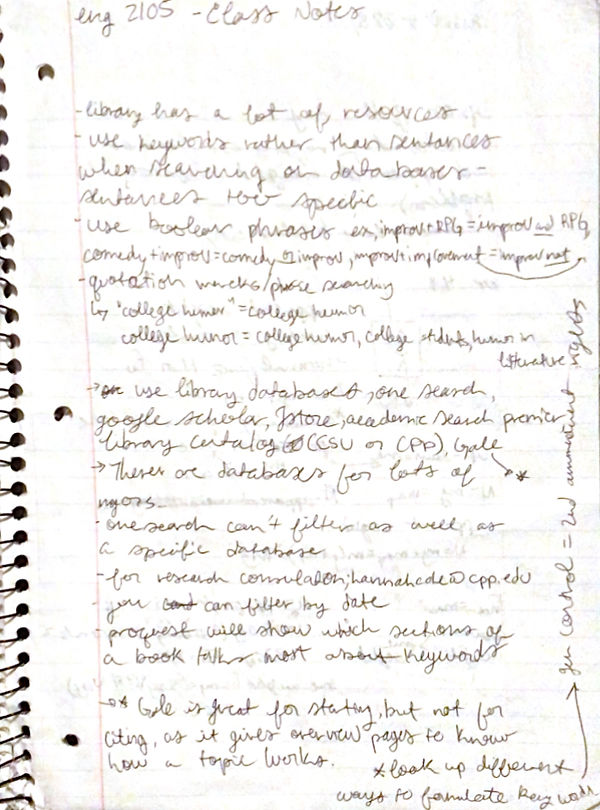 eng 2105 - Class Notes
- library has a lot of, resources
- use keywords rather than sentances
when searching on databases -
sentances too specific
- use boolean phrases ex, improv + RPG = improv and RPG,
comedy + improv = comedy or improv, improv + improvement = improv not
- quotation marks / phrase searching
↳ "college humor" = college humor
college humor = college humor, college students, humor in
literature
→ use library databases, one search,
google scholar, Jstore, academic search premier
library catalog (CSU or CPP), Gale
→ * 
→ Theres are databases for lots of
- onesearch can't filter as well as
a specific database
- for research consulation; hannahcde@cpp.edu
- you can filter by date
- proquest will show which sections of
a book talks most about keywords
→ * Gale is great for starting, but not for
citing, as it gives overview pages to know
how a topic works.
* look up different
ways to formulate key words
→ gun control = 2nd ammendment rights